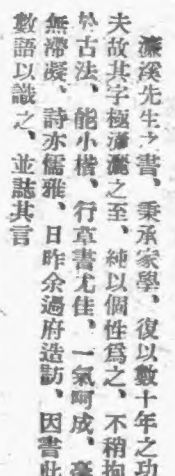 濂溪先生之書、秉承家學、復以數十年之功
夫故其字極瀟灑之至、純以個性爲之、不稍拘
於古法、能小楷、行草書尤佳、一氣呵成、毫
無滯凝、詩亦儒雅、日昨余過府造訪、因書此
數語以識之、並誌其言